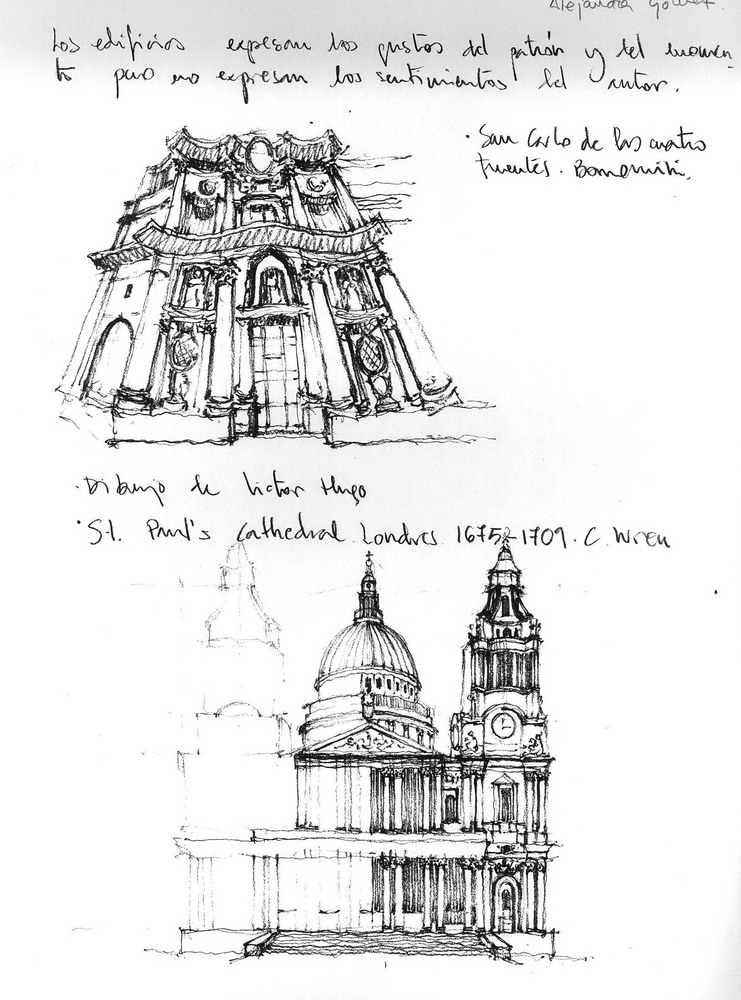 Alejandra Gómez.
Los edificios expresan los gustos del patrón y del momen
to pero no expresan los sentimientos del autor.
· San Carlo de las cuatro
fuentes. Borromini.
· Dibujo de Victor Hugo
· St. Paul's Cathedral. Londres 1675-1709. C. Wren